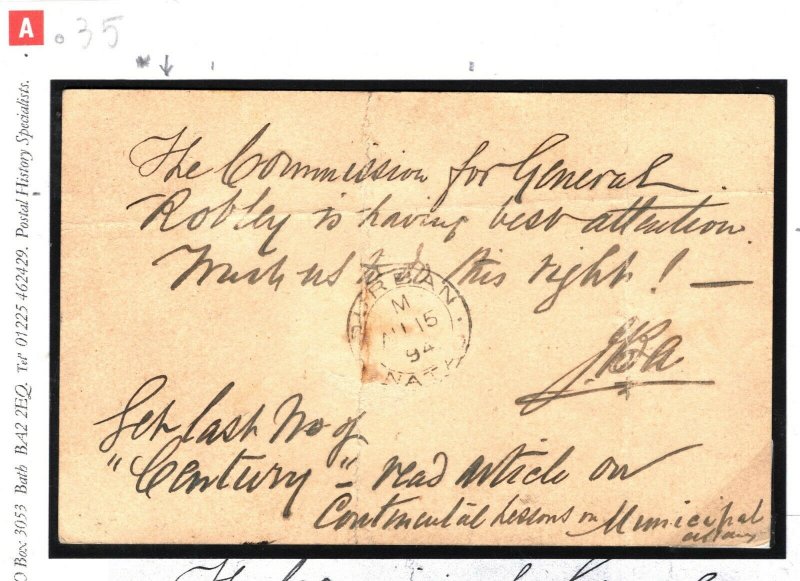 A
.35
PO Box 3053 Bath BA2 2EQ. Tel 01225 462429. Postal History Specialists.
The Commission for General
Robley is having best attention
Trust us to do this right! —
DURBAN
M
AU 15
94
NATAL
Get last No of
"Century" – read article on
Continental Lessons on Municipal